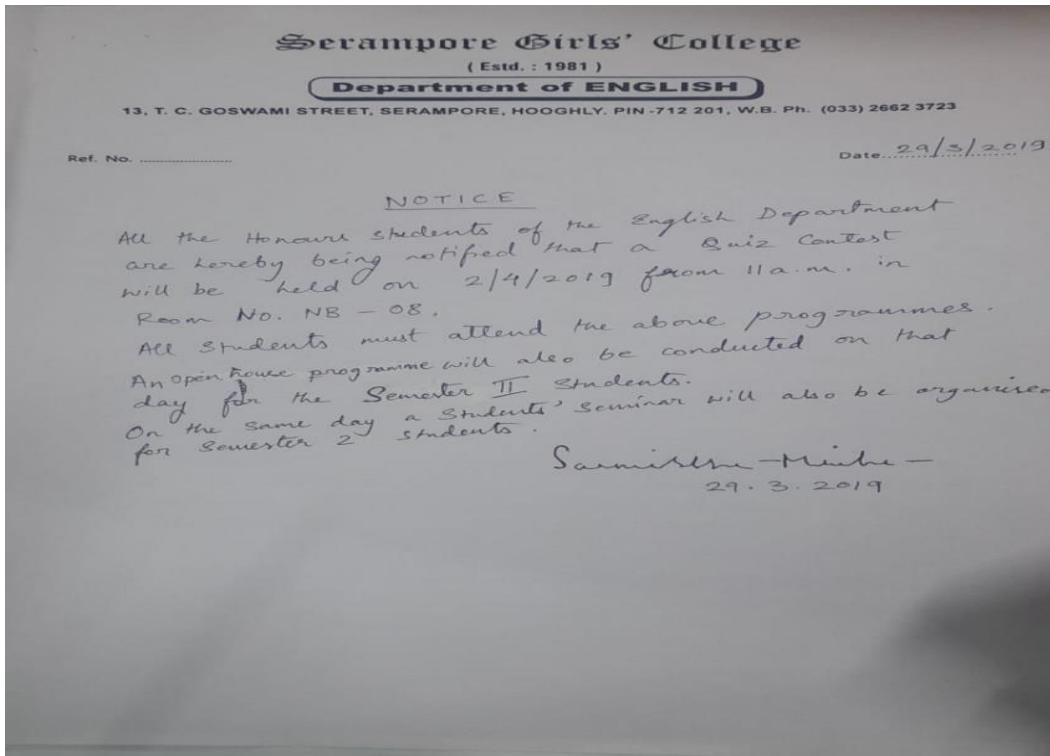 Serampore Girls' College
( Estd. : 1981 )
Department of ENGLISH
13, T. C. GOSWAMI STREET, SERAMPORE, HOOGHLY. PIN -712 201, W.B. Ph. (033) 2662 3723
Ref. No. ...................... Date 29/3/2019
NOTICE
All the Honours students of the English Department
are hereby being notified that a Quiz Contest
will be held on 2/4/2019 from 11 a.m. in
Room No. NB - 08.
All students must attend the above programmes.
An open house programme will also be conducted on that
day for the Semester II Students.
On the same day a Students' Seminar will also be organised
for Semester 2 students.
29.3.2019